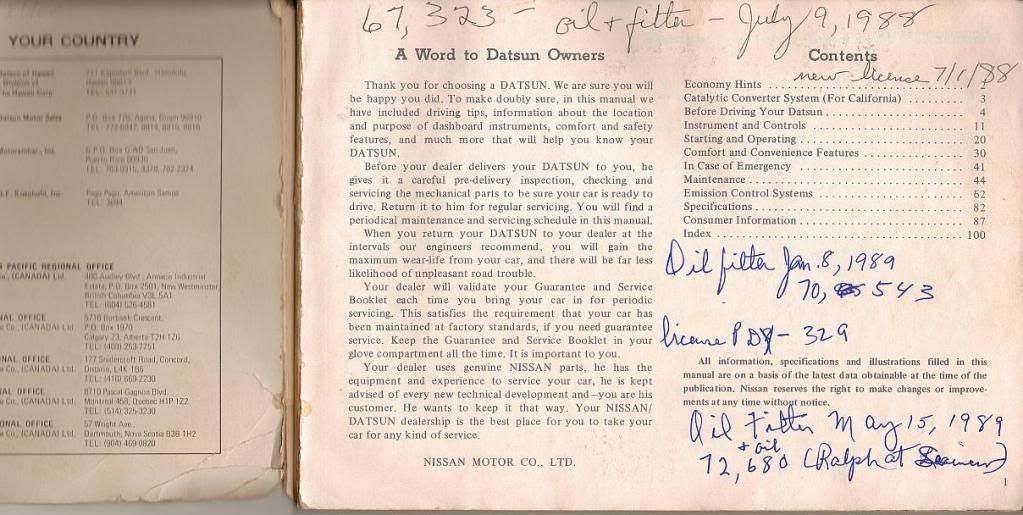 YOUR COUNTRY
of Hawaii
Division of
Hawaii Corp.
711 Kapiolani Blvd., Honolulu
Hawaii 96813
TEL: 531-3721
Datsun Motor Sales
P.O. Box 778, Agana, Guam 96910
G.P.O. Box G AD San Juan,
Puerto Rico 00936
Pago Pago, American Samoa
PACIFIC REGIONAL OFFICE
Co., (CANADA) Ltd.
480 Audley Blvd., Annacis Industrial
Estate, P.O. Box 2501, New Westminster,
British Columbia V3L 5A1
TEL: (604) 526-4581
NAL OFFICE
e Co., (CANADA) Ltd.
5716 Burbank Crescent,
P.O. Box 1970
Calgary 23, Alberta T2H 1Z6
TEL: (403) 253-7751
NAL OFFICE
e Co., (CANADA) Ltd.
177 Snidercroft Road, Concord,
Ontario, L4K 1B6
TEL: (416) 669-2230
NAL OFFICE
e Co., (CANADA) Ltd.
8710 Pascal Gagnon Blvd.
Montreal 458, Quebec H1P 1Z2
TEL: (514) 325-3230
ONAL OFFICE
e Co., (CANADA) Ltd.
57 Wright Ave.,
Dartmouth, Nova Scotia B3B 1H2
TEL: (904) 469-0820
67,323 - oil + filter - July 9, 1988
A Word to Datsun Owners
Thank you for choosing a DATSUN. We are sure you will
be happy you did. To make doubly sure, in this manual we
have included driving tips, information about the location
and purpose of dashboard instruments, comfort and safety
features, and much more that will help you know your
DATSUN.
Before your dealer delivers your DATSUN to you, he
gives it a careful pre-delivery inspection, checking and
servicing the mechanical parts to be sure your car is ready to
drive. Return it to him for regular servicing. You will find a
periodical maintenance and servicing schedule in this manual.
When you return your DATSUN to your dealer at the
intervals our engineers recommend, you will gain the
maximum wear-life from your car, and there will be far less
likelihood of unpleasant road trouble.
Your dealer will validate your Guarantee and Service
Booklet each time you bring your car in for periodic
servicing. This satisfies the requirement that your car has
been maintained at factory standards, if you need guarantee
service. Keep the Guarantee and Service Booklet in your
glove compartment all the time. It is important to you.
Your dealer uses genuine NISSAN parts, he has the
equipment and experience to service your car, he is kept
advised of every new technical development and—you are his
customer. He wants to keep it that way. Your NISSAN/
DATSUN dealership is the best place for you to take your
car for any kind of service.
NISSAN MOTOR CO., LTD.
Contents
new license 7/1/88
Economy Hints 2
Catalytic Converter System (For California) 3
Before Driving Your Datsun 4
Instrument and Controls 11
Starting and Operating 20
Comfort and Convenience Features 30
In Case of Emergency 41
Maintenance 44
Emission Control Systems 62
Specifications 82
Consumer Information 87
Index 100
Oil filter Jan. 8, 1989
70, 543
license PDY - 329
All information, specifications and illustrations filled in this
manual are on a basis of the latest data obtainable at the time of the
publication. Nissan reserves the right to make changes or improve-
ments at any time without notice.
Oil Filter May 15, 1989
+ oil
72,680 (Ralph at
1